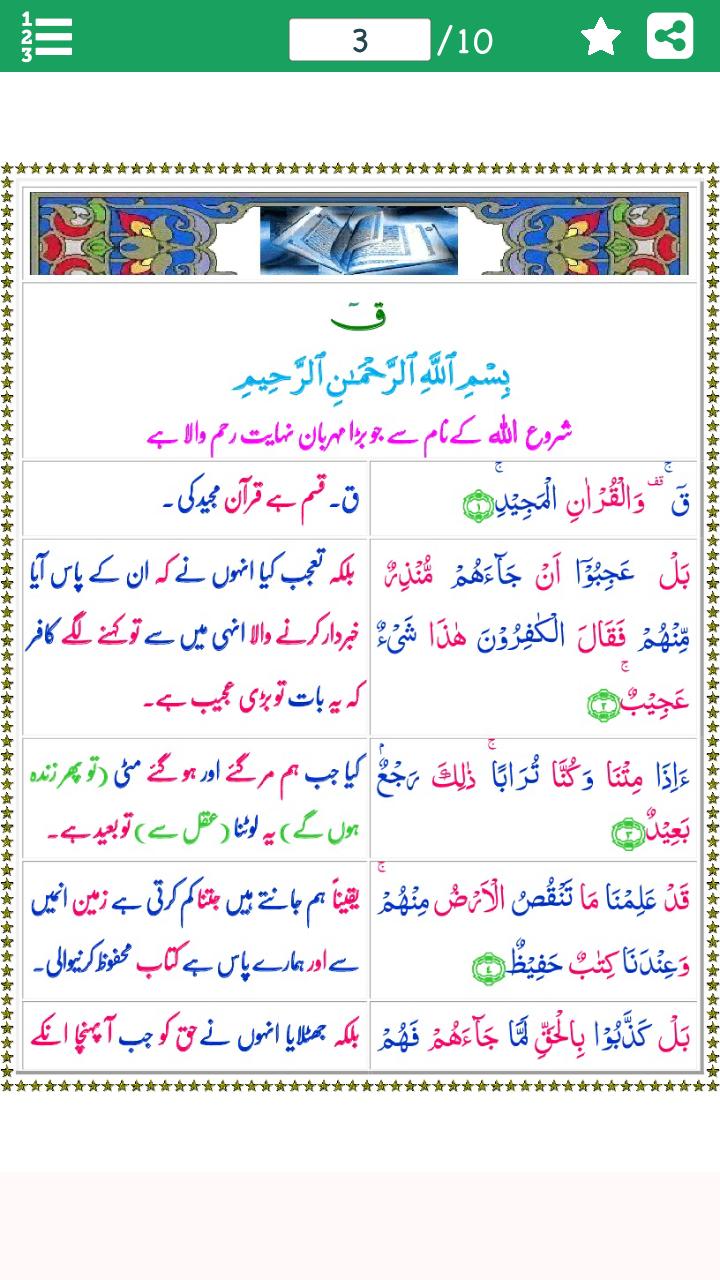 1
2
3
3
/10
قٓ
بِسْمِ ٱللَّهِ ٱلرَّحْمَـٰنِ ٱلرَّحِيمِ
شروع اللہ کے نام سے جو بڑا مہربان نہایت رحم والا ہے
قٓ ۚ قف وَالْقُرْاٰنِ الْمَجِيْدِ ۚ ۝١
ق۔ قسم ہے قرآن مجید کی۔
بَلْ عَجِبُوْٓا اَنْ جَآءَهُمْ مُّنْذِرٌ
مِّنْهُمْ فَقَالَ الْكٰفِرُوْنَ هٰذَا شَىْءٌ
عَجِيْبٌ ۚ ۝٢
بلکہ تعجب کیا انہوں نے کہ ان کے پاس آیا
خبردار کرنے والا انہی میں سے تو کہنے لگے کافر
کہ یہ بات تو بڑی عجیب ہے۔
ءَاِذَا مِتْنَا وَكُنَّا تُرَابًا ۚ ذٰلِكَ رَجْعٌۢ
بَعِيْدٌ ۝٣
کیا جب ہم مر گئے اور ہو گئے مٹی (تو پھر زندہ
ہوں گے) یہ لوٹنا (عقل سے) تو بعید ہے۔
قَدْ عَلِمْنَا مَا تَنْقُصُ الْاَرْضُ مِنْهُمْ ۚ
وَعِنْدَنَا كِتٰبٌ حَفِيْظٌ ۝٤
یقیناً ہم جانتے ہیں جتنا کم کرتی ہے زمین انہیں
سے اور ہمارے پاس ہے کتاب محفوظ کرنیوالی۔
بَلْ كَذَّبُوْا بِالْحَقِّ لَمَّا جَآءَهُمْ فَهُمْ
بلکہ جھٹلایا انہوں نے حق کو جب آ پہنچا انکے